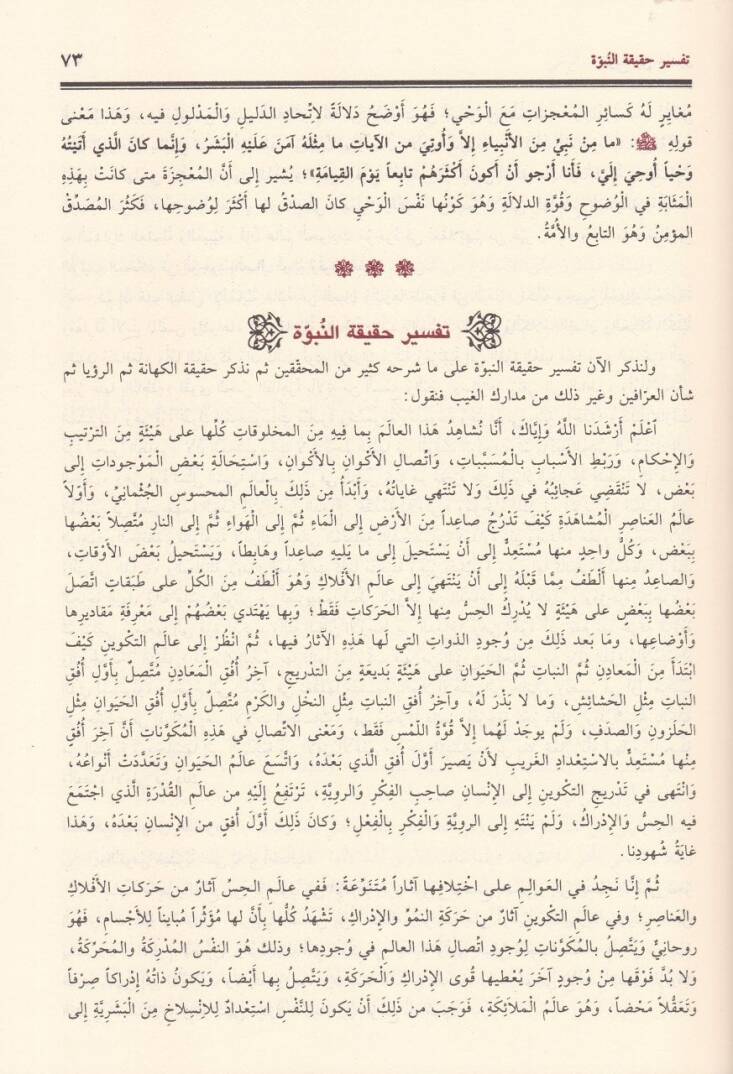 تفسير حقيقة النُبوّة ٧٣
مُغايِرٍ لَهُ كَسائِرِ المُعْجزاتِ مَعَ الْوَحْيِ؛ فَهُوَ أَوْضَحُ دَلالَةً لاِتْحادِ الدليلِ وَالْمَدْلولِ فيه، وَهَذا مَعْنى
قولِهِ ﷺ: «ما مِنْ نَبِيٍّ مِنَ الأَنْبِياءِ إلاَّ وَأُوتِيَ من الآياتِ ما مِثْلُهُ آمَنَ عَلَيْهِ الْبَشَرُ، وَإِنَّما كانَ الَّذي أُتِيتُهُ
وَحْياً أُوحِيَ إِلَيَّ، فَأَنا أَرْجو أَنْ أكونَ أَكْثَرَهُمْ تابِعاً يَوْمَ القِيامَةِ»؛ يُشير إلى أَنَّ المُعْجِزَةَ متى كانَتْ بِهَذِهِ
الْمَثابَةِ في الْوُضوحِ وَقُوَّةِ الدلالَةِ وَهُوَ كَوْنُها نَفْسَ الْوَحْيِ كانَ الصدْقُ لها أَكْثَرَ لِوُضوحِها، فَكَثُرَ المُصَدِّقُ
المؤمِنُ وَهُوَ التابِعُ والأُمَّةُ.
تفسير حقيقة النُبوّة
ولنذكر الآن تفسير حقيقة النبوّة على ما شرحه كثير من المحقّقين ثم نذكر حقيقة الكهانة ثم الرؤيا ثم
شأن العرّافين وغير ذلك من مدارك الغيب فنقول:
اَعْلَمْ أَرْشَدَنا اللَّهُ وَإِيَّاكَ، أَنَّا نُشاهِدُ هَذا العالَمَ بِما فيهِ مِنَ المخلوقاتِ كُلِّها على هَيْئَةٍ مِنَ الترْتيبِ
والإِحْكامِ، وَرَبْطِ الأَسْبابِ بالْمُسَبَّباتِ، وَاتِّصالِ الأَكْوانِ بِالأَكْوانِ، وَاسْتِحَالَةِ بَعْضِ المَوْجوداتِ إلى
بَعْض، لا تَنْقَضِي عَجائِبُهُ في ذَلِكَ وَلا تَنْتَهي غاياتُهُ، وَأَبْدَأُ مِن ذَلِكَ بِالْعالَمِ المحسوسِ الجُثْمانِيِّ، وَأَوَّلاً
عالَمُ العَناصِرِ المُشاهَدَةِ كَيْفَ تَدْرُجُ صاعِداً مِنَ الأَرْضِ إلى الْمَاءِ ثُمَّ إلى الْهَواءِ ثُمَّ إلى النارِ مُتَّصِلاً بَعْضُها
بِبَعْض، وَكُلُّ واحِدٍ منها مُسْتَعِدٌّ إلى أَنْ يَسْتَحيلَ إلى ما يَليهِ صاعِداً وهابِطاً، وَيَسْتَحيلُ بَعْضَ الأَوْقاتِ،
والصاعِدُ مِنها أَلْطَفُ مِمَّا قَبْلَهُ إلى أَنْ يَنْتَهيَ إلى عالَمِ الأَفْلاكِ وَهُوَ أَلْطَفُ مِنَ الكُلِّ على طَبَقاتٍ اتَّصَلَ
بَعْضُها بِبَعْضٍ على هَيْئَةٍ لا يُدْرِكُ الحِسُّ مِنها إلاَّ الحَرَكاتِ فَقَطْ؛ وَبِها يَهْتَدي بَعْضُهُمْ إلى مَعْرِفَةِ مَقاديرِها
وَأَوْضاعِها، وما بَعد ذَلِكَ مِن وُجودِ الذواتِ التي لَها هَذِهِ الآثارُ فيها، ثُمَّ انْظُرْ إلى عالَمِ التكْوينِ كَيْفَ
ابْتَدَأَ مِنَ المَعادِنِ ثُمَّ النباتِ ثُمَّ الحَيَوانِ على هَيْئَةٍ بَديعَةٍ مِنَ التدْريجِ، آخِرُ أُفُقِ الْمَعادِنِ مُتَّصِلٌ بِأَوَّلِ أُفُقِ
النباتِ مِثْلِ الحَشائِش، وَما لا بَذْرَ لَهُ، وآخِرُ أُفق النباتِ مِثْلِ النخْلِ والكَرْمِ مُتَّصِلٌ بِأَوَّلِ أُفُقِ الحَيَوانِ مِثْلِ
الحَلَزونِ والصدَفِ، وَلَمْ يوجَدْ لَهُما إلاَّ قُوَّةُ اللَّمْسِ فَقَط، وَمَعْنى الاتْصالِ في هَذِهِ المُكَوَّناتِ أَنَّ آخِرَ أُفُقٍ
مِنْها مُسْتَعِدٌّ بالاسْتِعْدادِ الغَريبِ لأَنْ يَصيرَ أَوَّلَ أُفقِ الَّذي بَعْدَهُ، وَاتَّسَعَ عالَمُ الحَيَوانِ وَتَعَدَّدَتْ أَنْواعُهُ،
وَانْتَهى في تَدْريجِ التكْوينِ إلى الإنْسانِ صاحِبِ الفِكْرِ والرويَّةِ، تَرْتَفِعُ إلَيْهِ من عالَمِ القُدْرَةِ الَّذي اجْتَمَعَ
فيه الحِسُّ وَالإِدْراكُ، وَلَمْ يَنْتَهِ إلى الرويَّةِ وَالْفِكْرِ بِالْفِعْلِ؛ وَكانَ ذَلِكَ أَوَّلَ أُفقٍ من الإِنْسانِ بَعْدَهُ، وَهَذا
غايَةُ شُهودِنا.
ثُمَّ إنَّا نَجِدُ في العَوالِمِ على اخْتِلافِها آثاراً مُتَنَوِّعَةً: فَفي عالَمِ الحِسِّ آثارٌ من حَرَكاتِ الأَفْلاكِ
والعَناصِرِ؛ وفي عالَمِ التكْوينِ آثارٌ من حَرَكَةِ النمُوِّ والإدْراكِ، تَشْهَدُ كُلُّها بِأَنَّ لها مُؤَثِّراً مُبايناً لِلأَجْسامِ، فَهُوَ
روحانِيٌّ وَيَتَّصِلُ بالمُكَوَّناتِ لِوُجودِ اتْصالِ هَذا العالمِ في وُجودِها؛ وذلك هُوَ النفْسُ المُدْرِكَةُ والمُحَرِّكَةُ،
وَلا بُدَّ فَوْقَها مِنْ وُجودٍ آخَرَ يُعْطيها قُوى الإدْراكِ وَالْحَرَكَةِ، وَيَتَّصِلُ بِها أَيْضاً، وَيَكونُ ذاتُهُ إدْراكاً صِرْفاً
وَتَعَقُّلاً مَحْضاً، وَهُوَ عالَمُ الْمَلائِكَةِ، فَوَجَبَ من ذَلِكَ أَنْ يَكونَ لِلنَّفْسِ اسْتِعْدادٌ لِلاِنْسِلاخِ مِنَ الْبَشَرِيَّةِ إلى